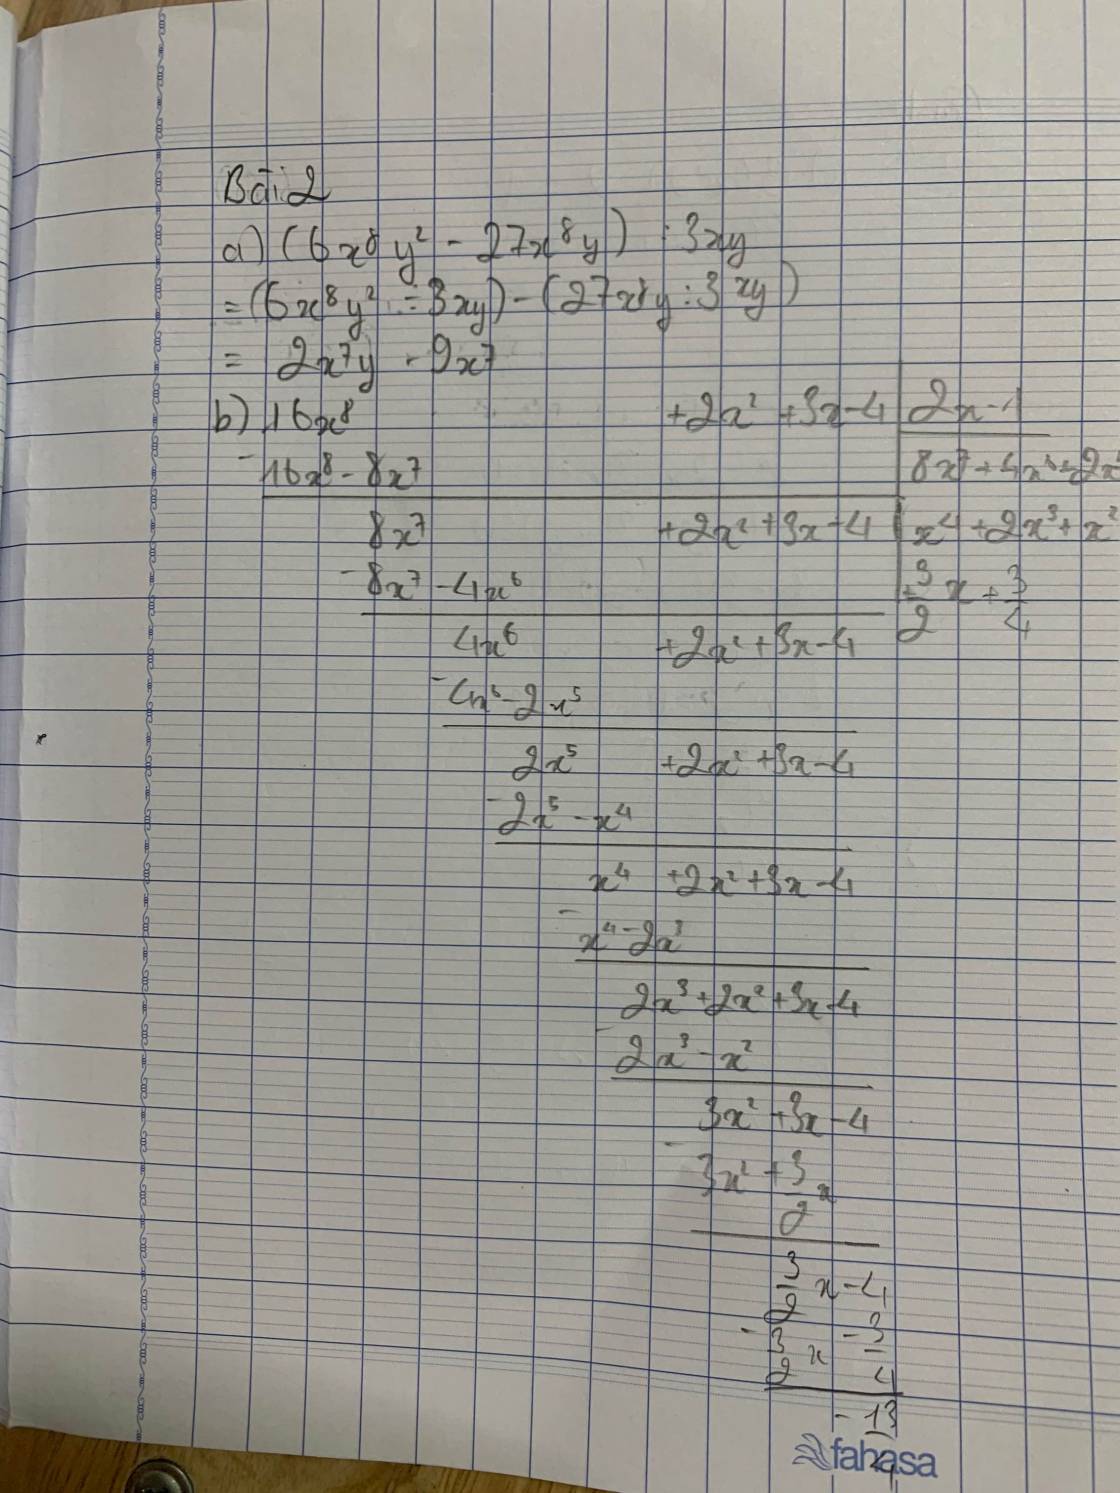 Bài 2
a) (6x⁸y² - 27x⁸y) : 3xy
= (6x⁸y² : 3xy) - (27x⁸y : 3xy)
= 2x⁷y - 9x⁷
b) 16x⁸ +2x² +3x-4 | 2x-1
- 16x⁸ - 8x⁷ 8x⁷ + 4x⁶ + 2x⁵
8x⁷ +2x² +3x-4 x⁴ +2x³ + x²
- 8x⁷ - 4x⁶ + 3/2 x + 3/4
4x⁶ +2x² +3x-4
- 4x⁶ - 2x⁵
2x⁵ +2x² +3x-4
- 2x⁵ - x⁴
x⁴ +2x² +3x-4
- x⁴ - 2x³
2x³ +2x² +3x-4
- 2x³ - x²
3x² +3x-4
- 3x² + 3/2 x
3/2 x - 4
- 3/2 x - 3/4
- 13/4
fahasa